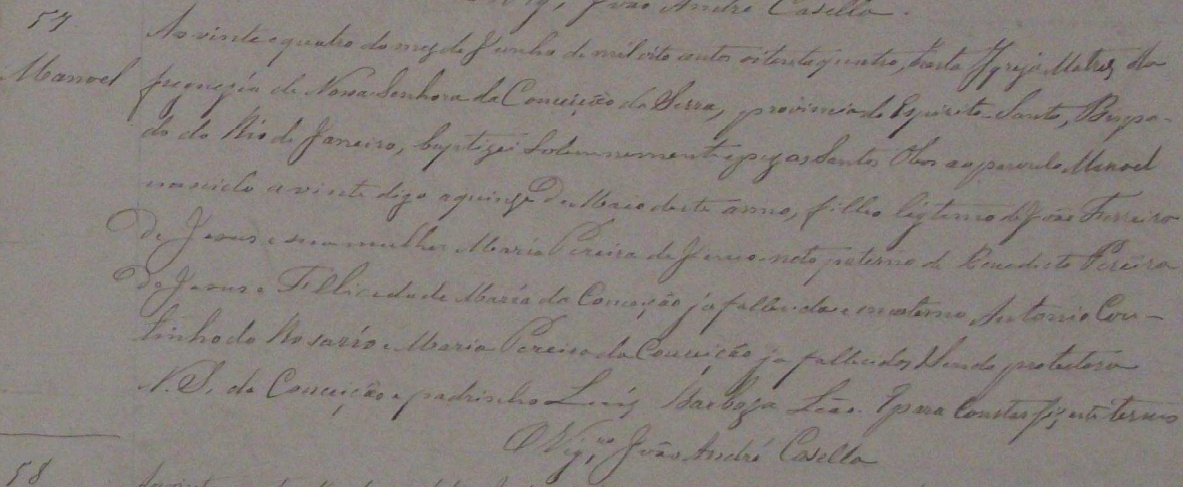 Vig.º João André Casella.
57
Ao vinte e quatro do mez de Junho de mil oito centos oitenta quatro, nesta Igreja Matriz da
Manoel
freguezia de Nossa Senhora da Conceição da Serra, provincia do Espirito-Santo, Bispa-
do do Rio de Janeiro, baptizei solemnemente e puz os Santos Oleos ao parvulo Manoel
nascido a vinte digo a quinze de Maio deste anno, filho ligitimo de João Ferreira
de Jesus e sua mulher Maria Pereira de Jesus neto paterno de Benedicto Pereira
de Jesus e Fillicidade Maria da Conceição ja fallecida e materno Antonio Cou-
tinho do Rosario e Maria Pereira da Conceição ja fallecidos Sendo protectora
N. S. da Conceição e padrinho Luiz Barboza Leão. E para constar fiz este termo
O Vigrº João André Casella
58